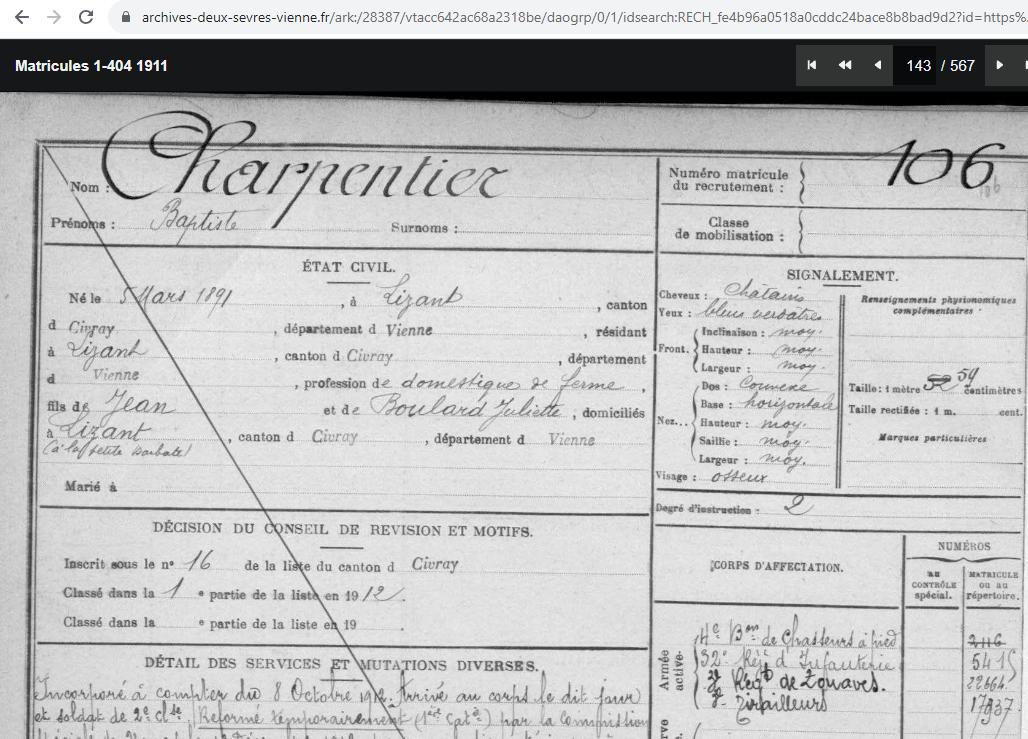 archives-deux-sevres-vienne.fr/ark:/28387/vtacc642ac68a2318be/daogrp/0/1/idsearch:RECH_fe4b96a0518a0cddc24bace8b8bad9d2?id=https%
Matricules 1-404 1911
143 / 567
Nom : Charpentier
Prénoms : Baptiste Surnoms :
Numéro matricule du recrutement : 106
106
Classe de mobilisation :
ÉTAT CIVIL.
Né le 5 Mars 1891, à Lizant, canton
d Civray, département d Vienne, résidant
à Lizant, canton d Civray, département
d Vienne, profession de domestique de ferme,
fils de Jean et de Boulard Juliette, domiciliés
à Lizant, canton d Civray, département d Vienne
(à la petite
Marié à
SIGNALEMENT.
Cheveux : châtains
Yeux : bleus verdâtres
Front. Inclinaison : moy.
Hauteur : moy.
Largeur : moy.
Nez... Dos : Convexe
Base : horizontale
Hauteur : moy.
Saillie : moy.
Largeur : moy.
Visage : osseux
Renseignements physionomiques complémentaires :
Taille : 1 mètre 59 centimètres
Taille rectifiée : 1 m. cent.
Marques particulières
Degré d'instruction : 2
DÉCISION DU CONSEIL DE REVISION ET MOTIFS.
Inscrit sous le nº 16 de la liste du canton d Civray
Classé dans la 1 e partie de la liste en 1912.
Classé dans la e partie de la liste en 19
CORPS D'AFFECTATION.
NUMÉROS
AU CONTRÔLE spécial.
MATRICULE OU AU répertoire.
Armée active.
4e Bon de Chasseurs à pied 2116
32e Régt d'Infanterie 5415
Régt de Zouaves. 22664
Tirailleurs 17937
DÉTAIL DES SERVICES ET MUTATIONS DIVERSES.
Incorporé à compter du 8 Octobre 1912. Arrivé au corps le dit jour
et soldat de 2e clse. Réformé temporairement (1ère catie) par la Commission